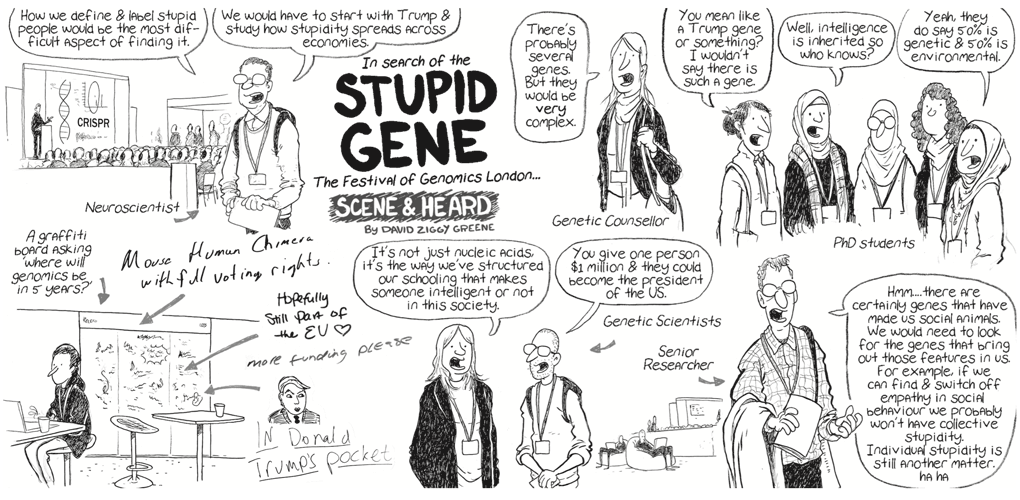 How we define & label stupid
people would be the most dif-
ficult aspect of finding it.
We would have to start with Trump &
study how stupidity spreads across
economies.
CRISPR
Neuroscientist
In search of the
STUPID
GENE
The Festival of Genomics London...
SCENE & HEARD
By DAVID ZIGGY GREENE
There's
probably
several
genes.
But they
would be
very
complex.
Genetic Counsellor
You mean like
a Trump gene
or something?
I wouldn't
say there is
such a gene.
Well, intelligence
is inherited so
who knows?
Yeah, they
do say 50% is
genetic & 50% is
environmental.
PhD students
A graffiti
board asking
'where will
genomics be
in 5 years?'
Mouse Human Chimera
with full voting rights.
Hopefully
Still part of
the EU ♡
more funding please
IN Donald
Trump's pocket
It's not just nucleic acids,
it's the way we've structured
our schooling that makes
someone intelligent or not
in this society.
You give one person
$1 million & they could
become the president
of the US.
Genetic Scientists
Senior
Researcher
Hmm....there are
certainly genes that have
made us social animals.
We would need to look
for the genes that bring
out those features in us.
For example, if we
can find & switch off
empathy in social
behaviour we probably
won't have collective
stupidity.
Individual stupidity is
still another matter.
HA HA